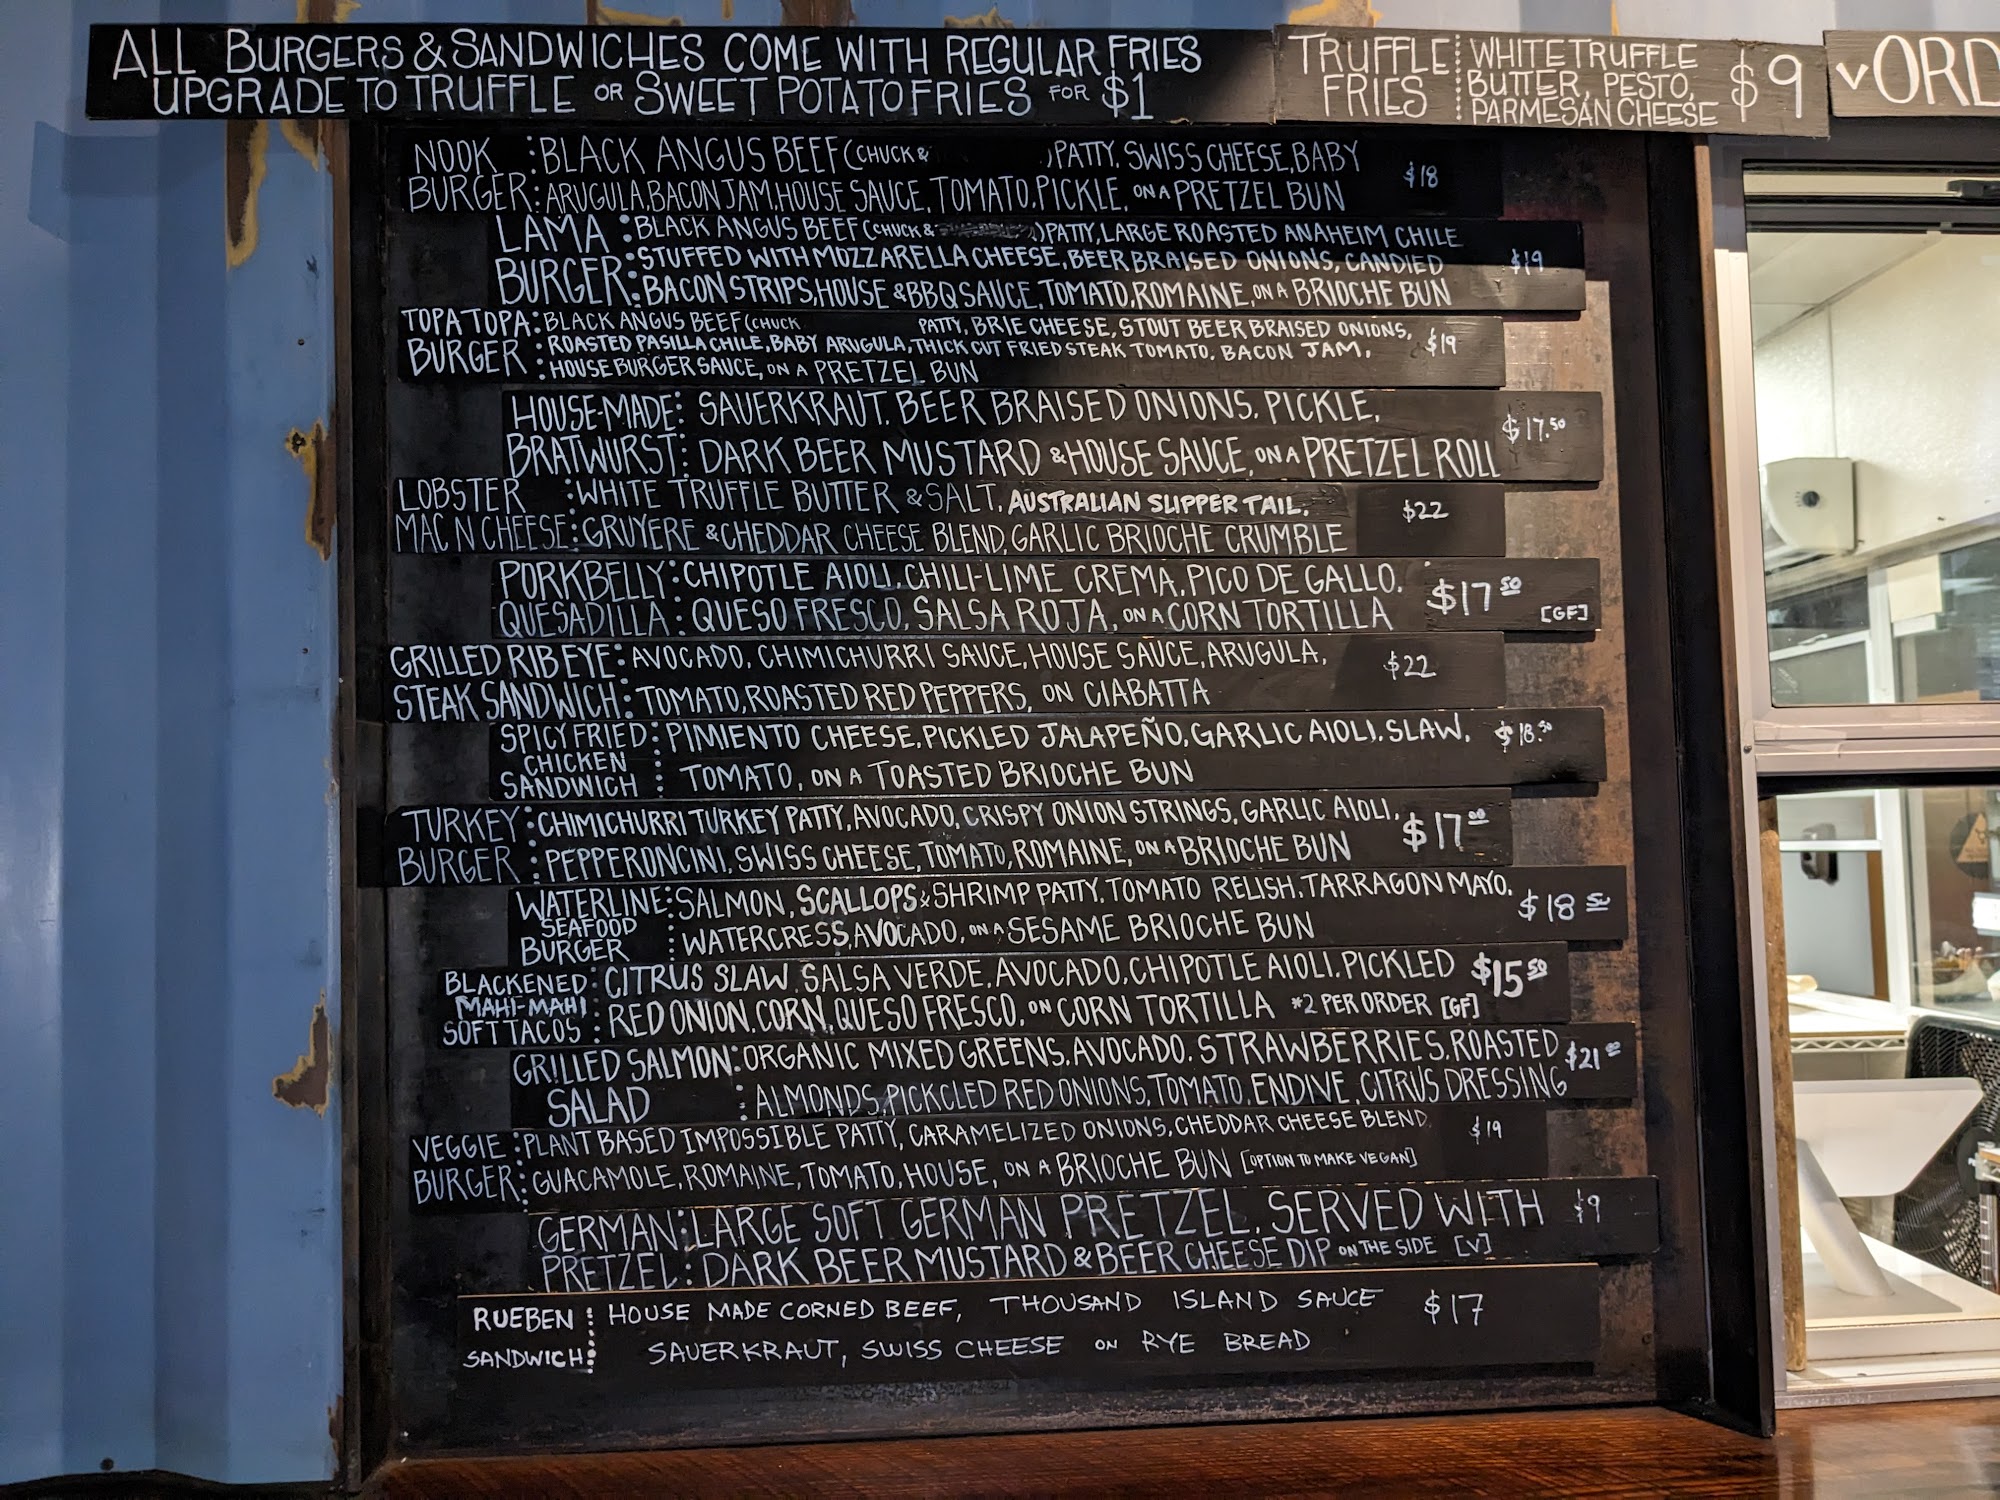 ALL BURGERS & SANDWICHES COME WITH REGULAR FRIES
UPGRADE TO TRUFFLE OR SWEET POTATO FRIES FOR $1
TRUFFLE FRIES : WHITE TRUFFLE
BUTTER, PESTO,
PARMESAN CHEESE $9
ORD
NOOK : BLACK ANGUS BEEF (CHUCK & ) PATTY, SWISS CHEESE, BABY
BURGER : ARUGULA, BACON JAM, HOUSE SAUCE, TOMATO, PICKLE, ON A PRETZEL BUN $18
LAMA : BLACK ANGUS BEEF (CHUCK & ) PATTY, LARGE ROASTED ANAHEIM CHILE
BURGER : STUFFED WITH MOZZARELLA CHEESE, BEER BRAISED ONIONS, CANDIED $19
BACON STRIPS, HOUSE & BBQ SAUCE, TOMATO, ROMAINE, ON A BRIOCHE BUN
TOPA TOPA : BLACK ANGUS BEEF (CHUCK PATTY, BRIE CHEESE, STOUT BEER BRAISED ONIONS,
BURGER : ROASTED PASILLA CHILE, BABY ARUGULA, THICK CUT FRIED STEAK TOMATO, BACON JAM, $19
HOUSE BURGER SAUCE, ON A PRETZEL BUN
HOUSE-MADE : SAUERKRAUT, BEER BRAISED ONIONS, PICKLE,
BRATWURST : DARK BEER MUSTARD & HOUSE SAUCE, ON A PRETZEL ROLL $17.50
LOBSTER : WHITE TRUFFLE BUTTER & SALT, AUSTRALIAN SLIPPER TAIL,
MAC N CHEESE : GRUYERE & CHEDDAR CHEESE BLEND, GARLIC BRIOCHE CRUMBLE $22
PORKBELLY : CHIPOTLE AIOLI, CHILI-LIME CREMA, PICO DE GALLO,
QUESADILLA : QUESO FRESCO, SALSA ROJA, ON A CORN TORTILLA $17 50 [GF]
GRILLED RIBEYE : AVOCADO, CHIMICHURRI SAUCE, HOUSE SAUCE, ARUGULA,
STEAK SANDWICH : TOMATO, ROASTED RED PEPPERS, ON CIABATTA $22
SPICY FRIED : PIMIENTO CHEESE, PICKLED JALAPEÑO, GARLIC AIOLI, SLAW, $18.50
CHICKEN
SANDWICH : TOMATO, ON A TOASTED BRIOCHE BUN
TURKEY : CHIMICHURRI TURKEY PATTY, AVOCADO, CRISPY ONION STRINGS, GARLIC AIOLI, $17 00
BURGER : PEPPERONCINI, SWISS CHEESE, TOMATO, ROMAINE, ON A BRIOCHE BUN
WATERLINE : SALMON, SCALLOPS & SHRIMP PATTY, TOMATO RELISH, TARRAGON MAYO, $18 50
SEAFOOD
BURGER : WATERCRESS, AVOCADO, ON A SESAME BRIOCHE BUN
BLACKENED : CITRUS SLAW, SALSA VERDE, AVOCADO, CHIPOTLE AIOLI, PICKLED $15 50
MAHI-MAHI
SOFT TACOS : RED ONION, CORN, QUESO FRESCO, ON CORN TORTILLA *2 PER ORDER [GF]
GRILLED SALMON : ORGANIC MIXED GREENS, AVOCADO, STRAWBERRIES, ROASTED $21 00
SALAD : ALMONDS, PICKCLED RED ONIONS, TOMATO, ENDIVE, CITRUS DRESSING
VEGGIE : PLANT BASED IMPOSSIBLE PATTY, CARAMELIZED ONIONS, CHEDDAR CHEESE BLEND, $19
BURGER : GUACAMOLE, ROMAINE, TOMATO, HOUSE, ON A BRIOCHE BUN [OPTION TO MAKE VEGAN]
GERMAN : LARGE SOFT GERMAN PRETZEL, SERVED WITH $9
PRETZEL : DARK BEER MUSTARD & BEER CHEESE DIP ON THE SIDE [V]
RUEBEN : HOUSE MADE CORNED BEEF, THOUSAND ISLAND SAUCE $17
SANDWICH : SAUERKRAUT, SWISS CHEESE ON RYE BREAD